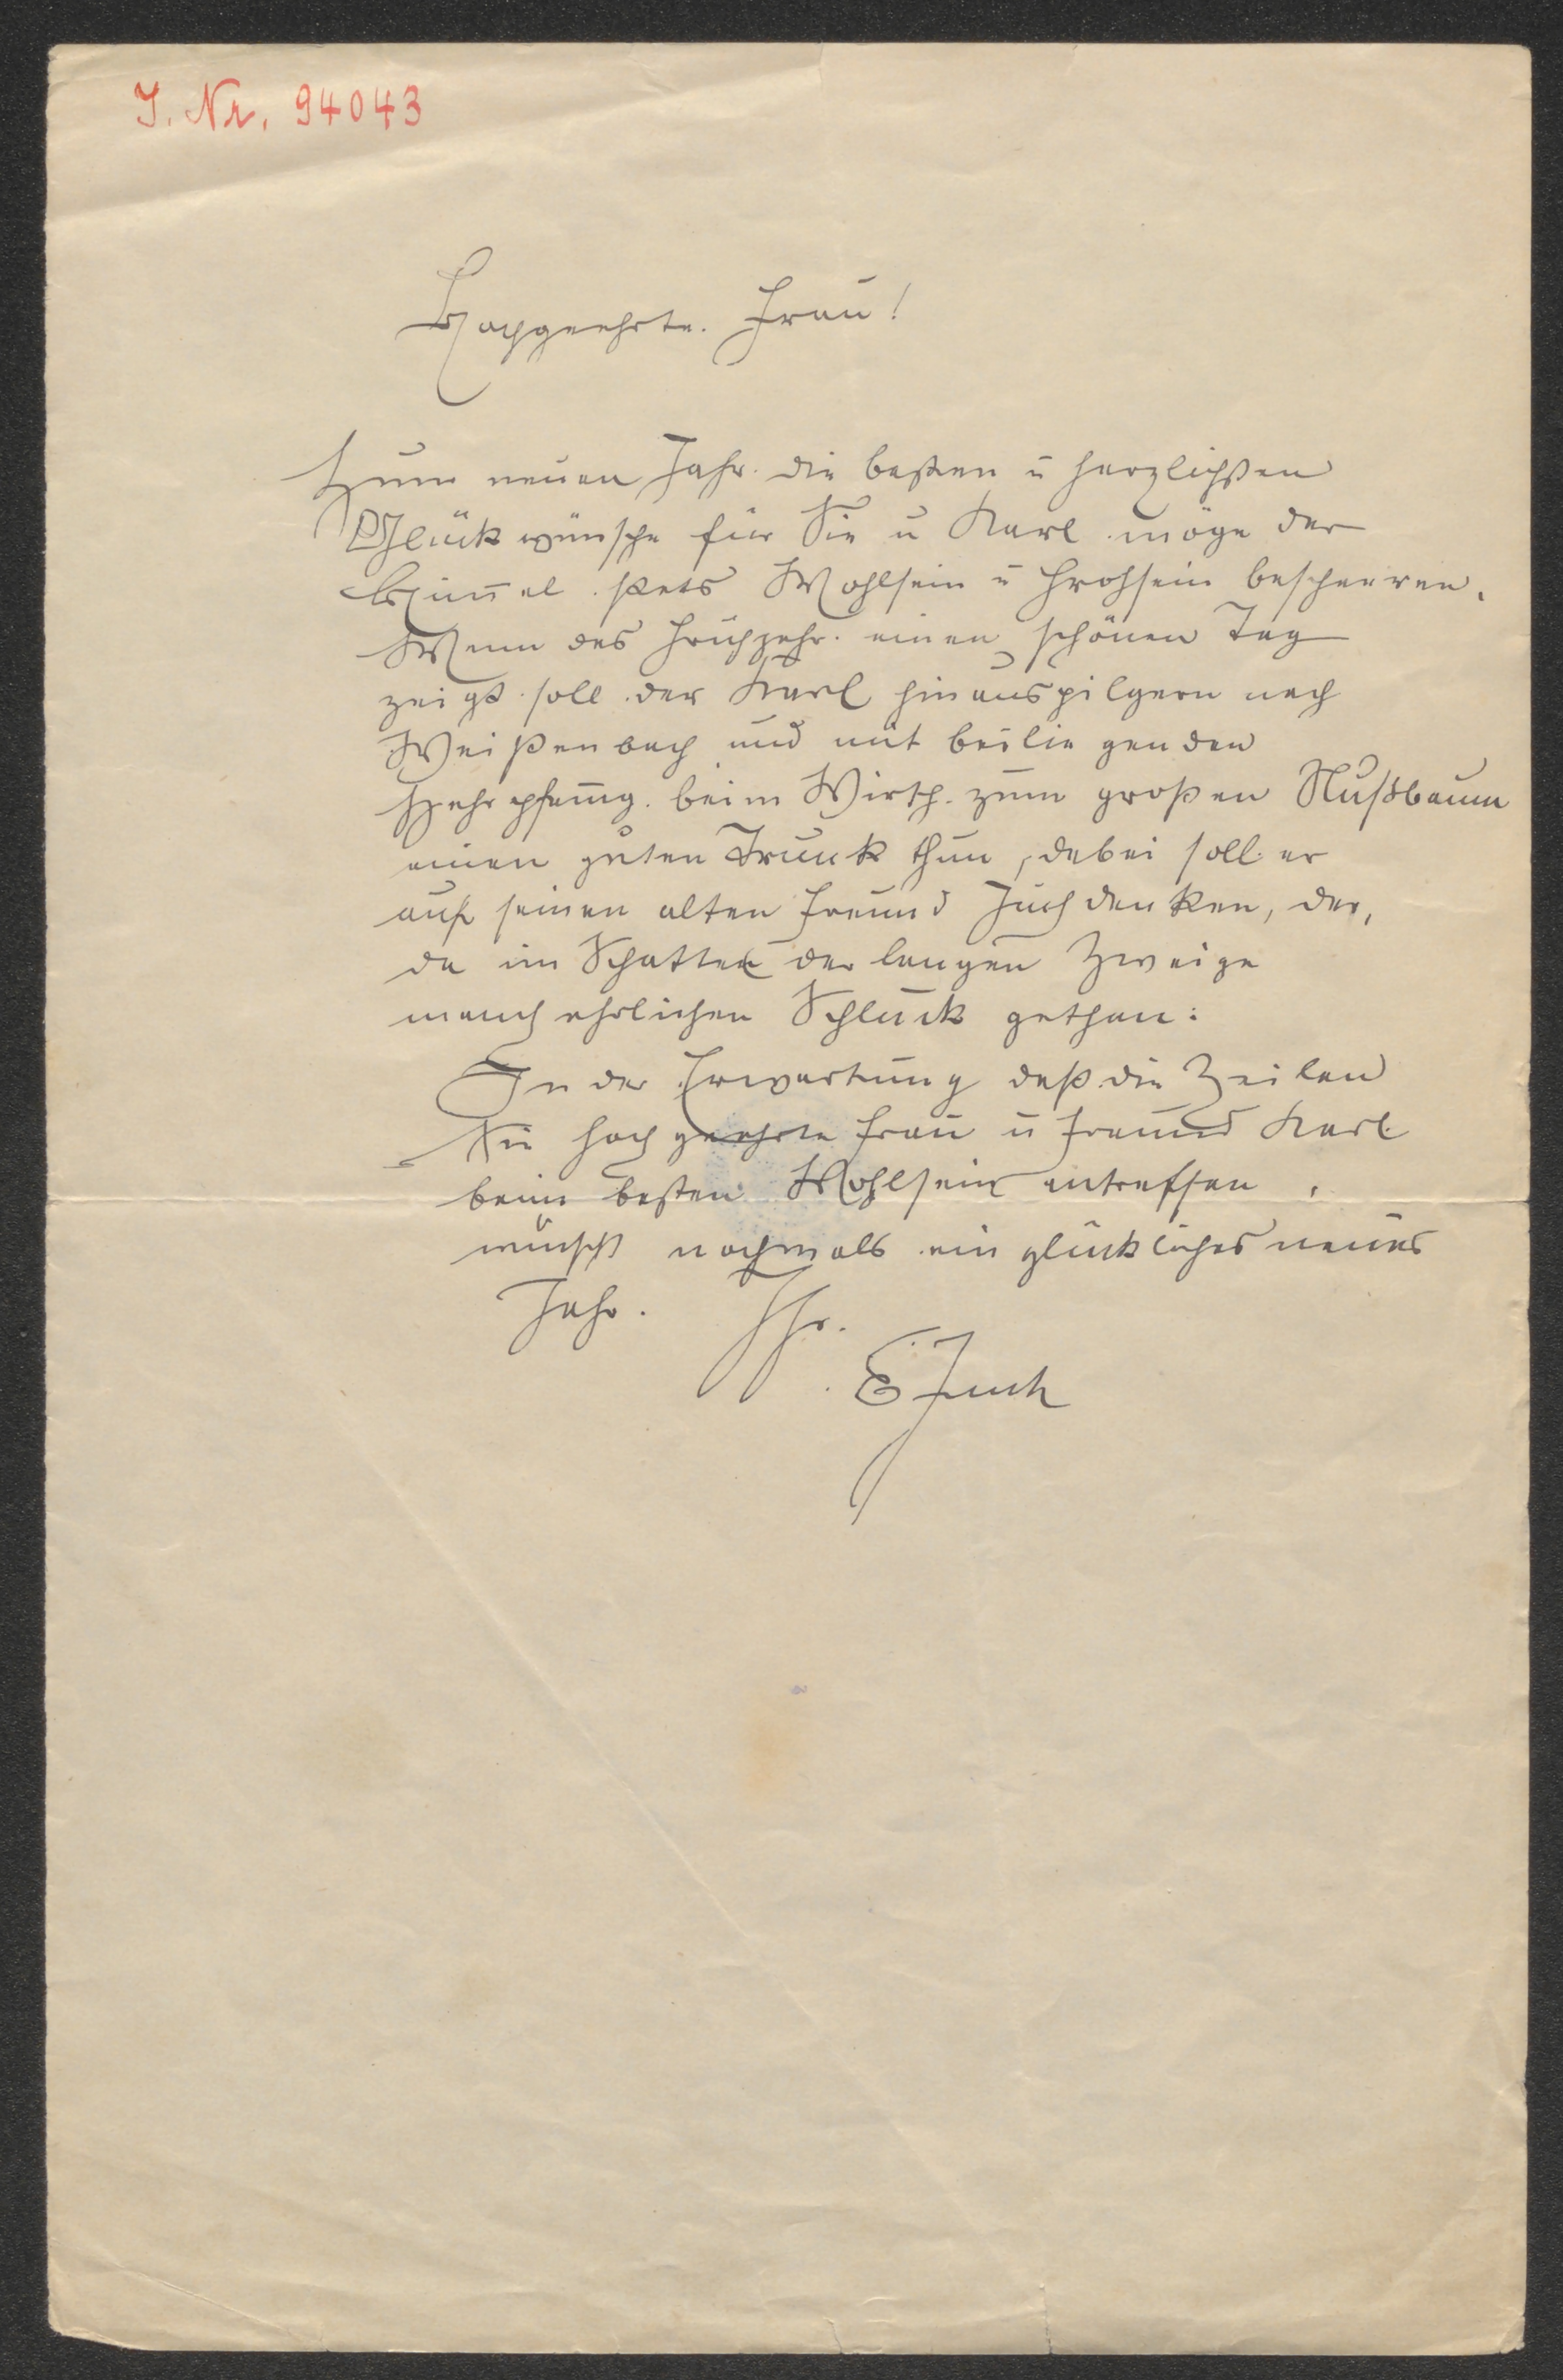 J. Nr. 94043
Hochgeehrte Frau!
Zum neuen Jahr die besten u herzlichsten
Glückwünsche für Sie u Karl möge der
Himmel stets Wohlsein u Frohsein bescheeren.
Wenn das Frühjahr einen schönen Tag
zeigt soll der Karl hinauspilgern nach
Weißenbach und mit beiliegenden
Zehrpfennig beim Wirth zum großen Nußbaum
einen guten Trunk thun, dabei soll er
auf seinen alten Freund Juch denken, der,
da im Schatten der langen Zweige
manch ehrlichen Schluck gethan:
In der Erwartung daß die Zeilen
Sie hochgeehrte Frau u Freund Karl
beim besten Wohlsein antreffen,
wünscht nochmals ein glückliches neues
Jahr. Ihr
E Juch